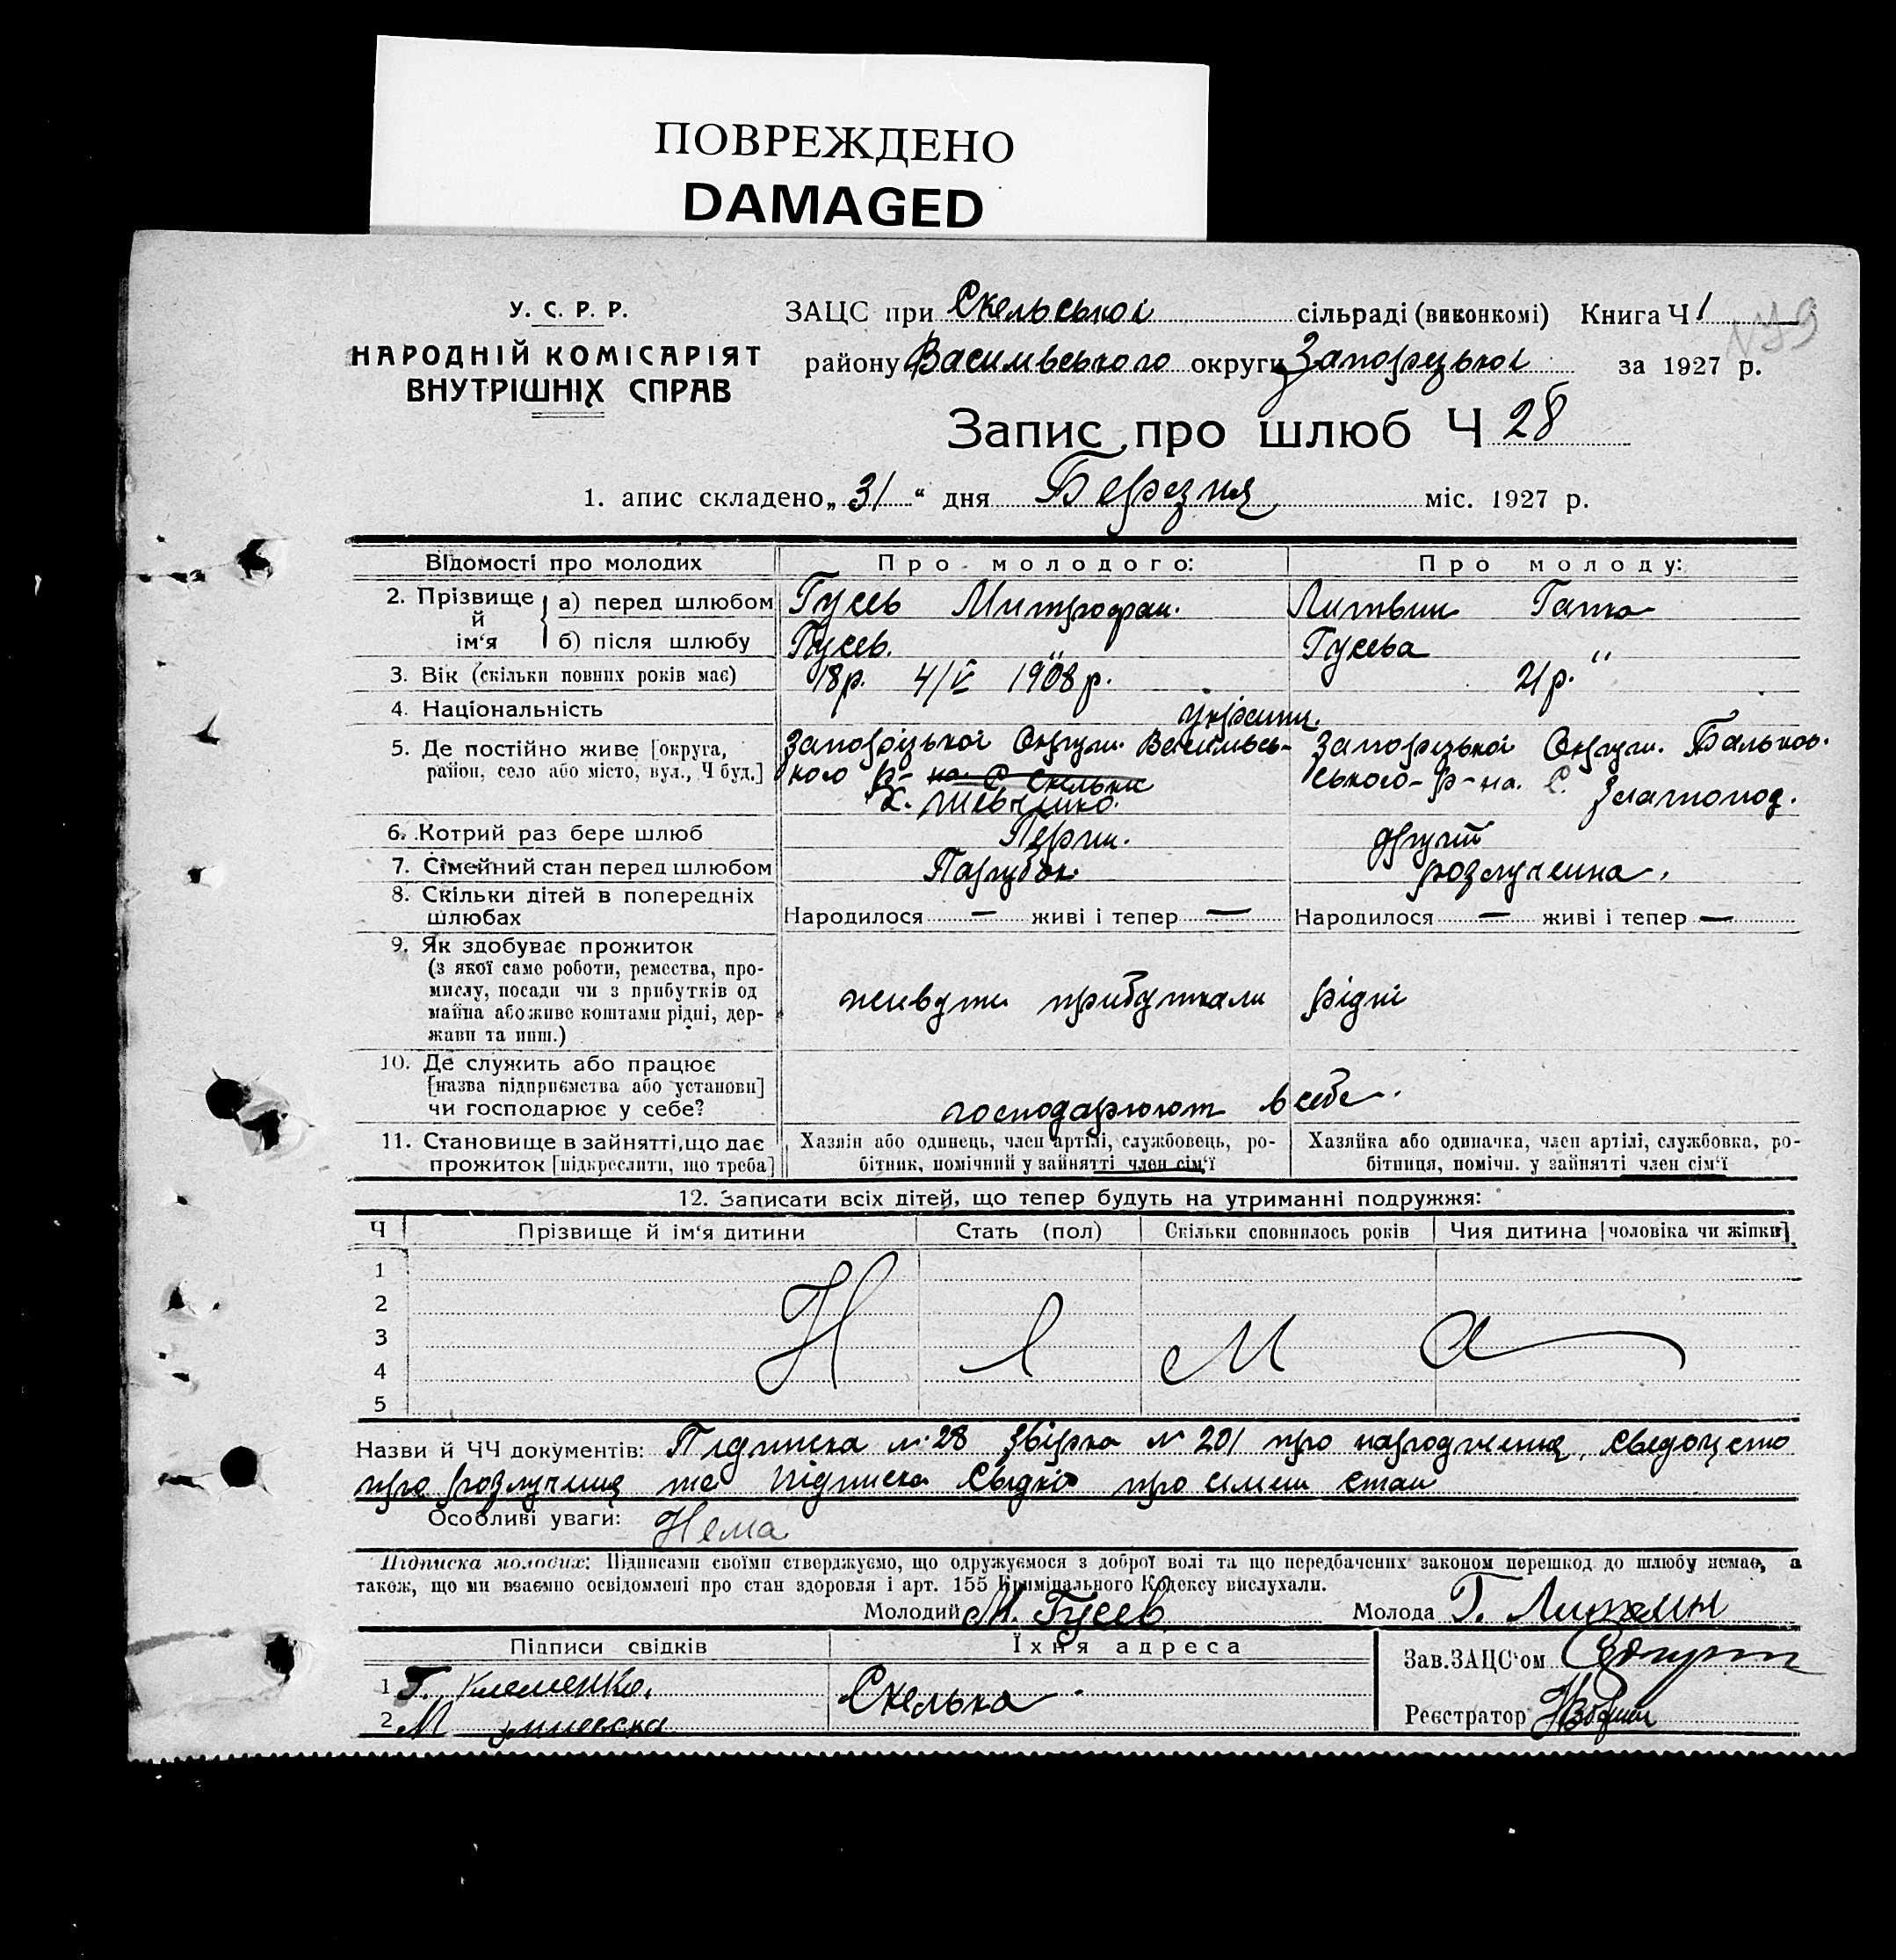 ПОВРЕЖДЕНО
DAMAGED
У. С. Р. Р.
НАРОДНІЙ КОМІСАРІЯТ
ВНУТРІШНІХ СПРАВ
ЗАЦС при Скельської сільраді (виконкомі) Книга Ч 1
району Василівського округи Запорізької за 1927 р.
Запис про шлюб Ч 28
1. апис складено „31“ дня Березня міс. 1927 р.
Відомості про молодих Про молодого: Про молоду:
2. Прізвище й ім‘я а) перед шлюбом Гусев Митрофан. Литвин Гапка
б) після шлюбу Гусев. " Гусева "
3. Вік (скільки повних років має) 18р. 4/V 1908 р. 21р.
4. Національність україни.
5. Де постійно живе [округа, Запорізької Округи. Василівсь- Запорізької Округи. Бальков-
район, село або місто, вул., Ч буд.] кого р- на С Скельки ського-р-на. С. Златопол.
Х. Шевченко.
6. Котрий раз бере шлюб Перши. другий
7. Сімейний стан перед шлюбом Парубок. розлучена.
8. Скільки дітей в попередніх
шлюбах Народилося — живі і тепер — Народилося — живі і тепер —
9. Як здобуває прожиток
(з якої саме роботи, ремества, про-
мислу, посади чи з прибутків од живути прибутками рідні
майна або живе коштами рідні, дер-
жави та инш.)
10. Де служить або працює
[назва підприємства або установи]
чи господарює у себе? господарюют в себе.
11. Становище в зайнятті, що дає Хазяїн або одинець, член артілі, службовець, ро- Хазяйка або одиначка, член артілі, службовка, ро-
прожиток [підкреслити, що треба] бітник, помічний у зайнятті член сім‘ї бітниця, помічн. у зайнятті член сім‘ї
12. Записати всіх дітей, що тепер будуть на утриманні подружжя:
Ч Прізвище й ім‘я дитини Стать (пол) Скільки сповнилось років Чия дитина [чоловіка чи жінки]
1
2
3 Нема
4
5
Назви й ЧЧ документів: Підписка № 28 Звірка № 201 про народження, сведоцтво
про розлучения та підписка свідків про симеи стан
Особливі уваги: Нема
Підписка молодих: Підписами своїми стверджуємо, що одружуємося з доброї волі та що передбачених законом перешкод до шлюбу немає, а
також, що ми взаємно освідомлені про стан здоровля і арт. 155 Кримінального Кодексу вислухали.
Молодий М. Гусев Молода Г. Литвин
Підписи свідків Їхня адреса Зав. ЗАЦС‘ом
1 Г. Клеменко. Скелька
2 М Реєстратор